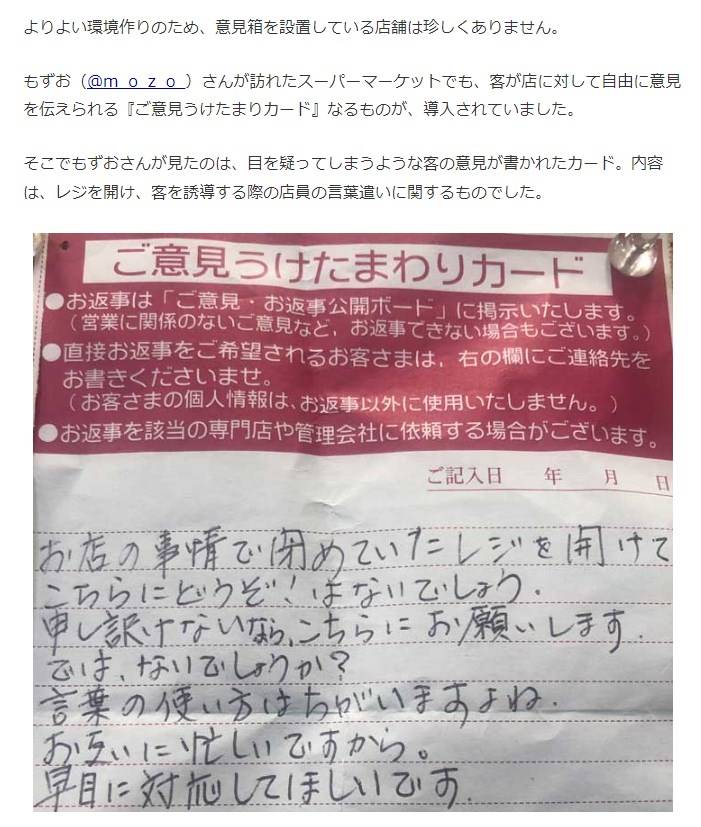 よりよい環境作りのため、意見箱を設置している店舗は珍しくありません。
もずお（@m_o_z_o_）さんが訪れたスーパーマーケットでも、客が店に対して自由に意見
を伝えられる『ご意見うけたまりカード』なるものが、導入されていました。
そこでもずおさんが見たのは、目を疑ってしまうような客の意見が書かれたカード。内容
は、レジを開け、客を誘導する際の店員の言葉遣いに関するものでした。
ご意見うけたまわりカード
●お返事は「ご意見・お返事公開ボード」に掲示いたします。
（営業に関係のないご意見など，お返事できない場合もございます。）
●直接お返事をご希望されるお客さまは，右の欄にご連絡先を
お書きくださいませ。
（お客さまの個人情報は、お返事以外に使用いたしません。）
●お返事を該当の専門店や管理会社に依頼する場合がございます。
ご記入日 年 月 日
お店の事情で閉めていたレジを開けて
こちらにどうぞ！はないでしょう.
申し訳けないなら、こちらにお願いします.
では、ないでしょうか?
言葉の使い方はちがいますよね.
お互いに忙しいですから。
早目に対応してほしいです.